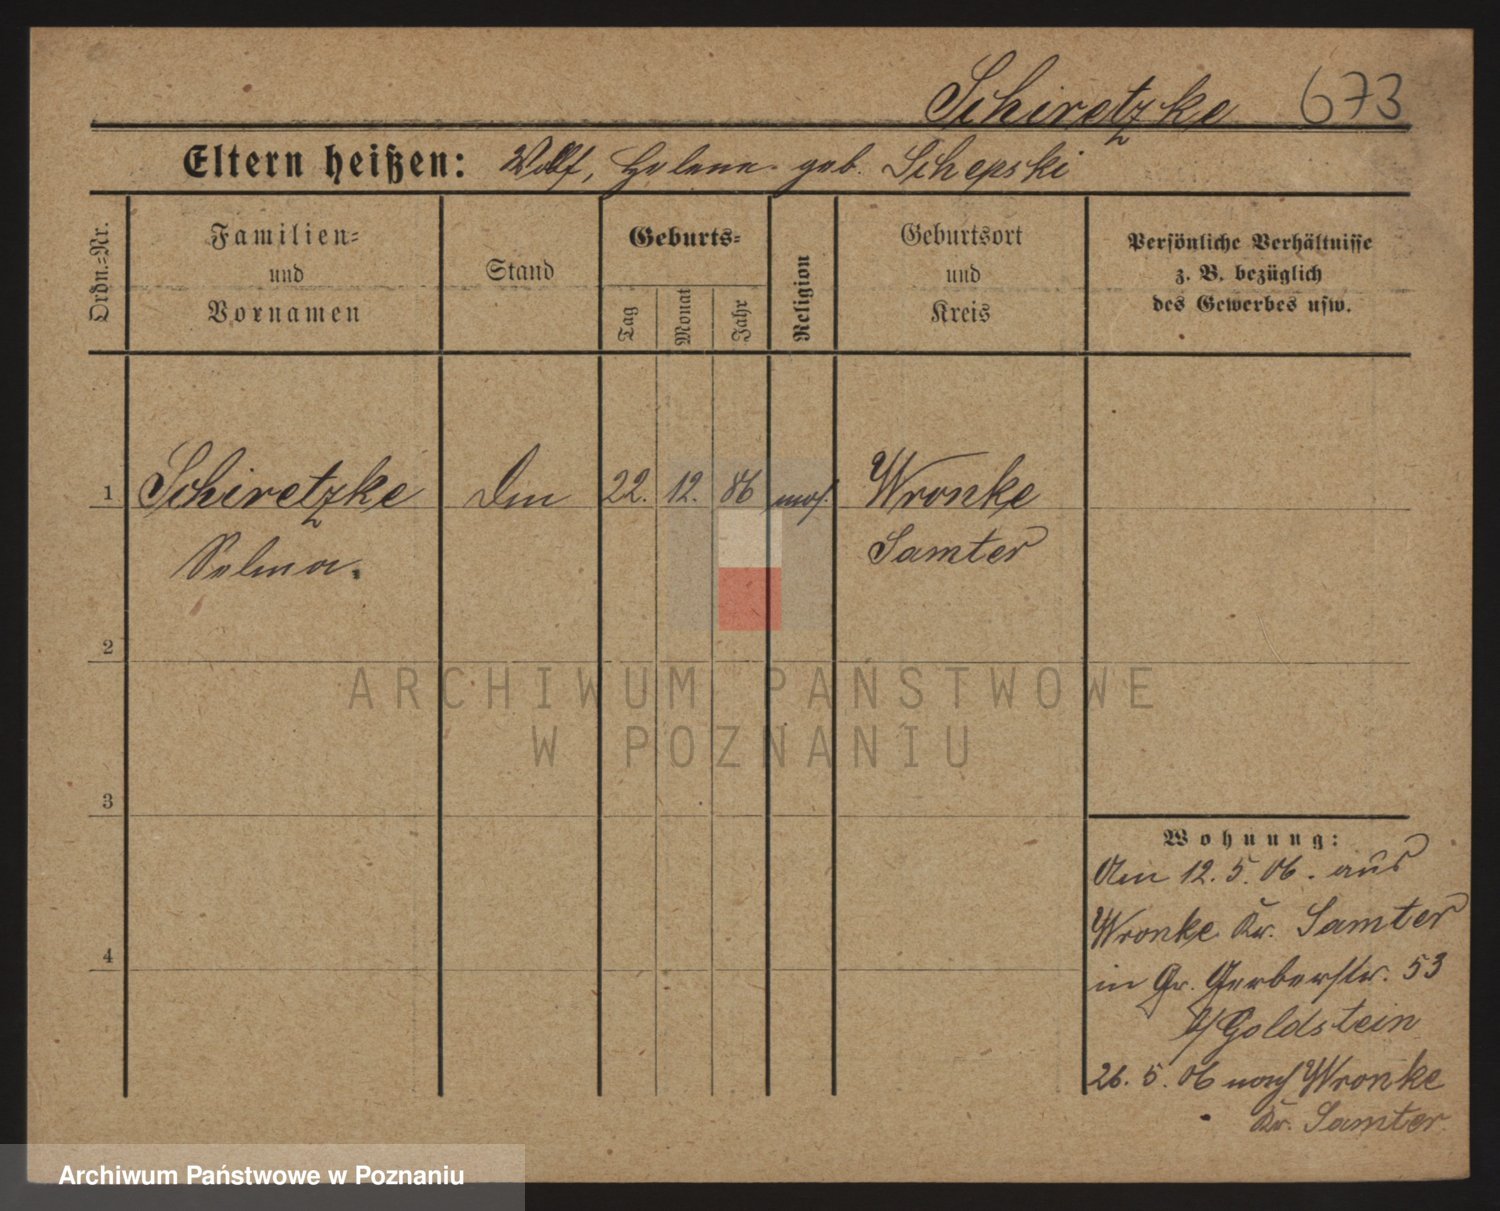 Schiretzke 673
Eltern heißen: Wolf, Helene geb. Schepski
Ordn.-Nr.
Familien-
und
Vornamen
Stand
Geburts-
Tag
Monat
Jahr
Religion
Geburtsort
und
Kreis
Persönliche Verhältnisse
z. B. bezüglich
des Gewerbes usw.
1 Schiretzke 22. 12. 86 mos. Wronke
Selma. Samter
2
3
4
ARCHIWUM PAŃSTWOWE
W POZNANIU
Wohnung:
Am 12. 5. 06. aus
Wronke Kr. Samter
in Gr. Gerberstr. 53
b/Goldstein
26. 5. 06 nach Wronke
Kr. Samter.
Archiwum Państwowe w Poznaniu